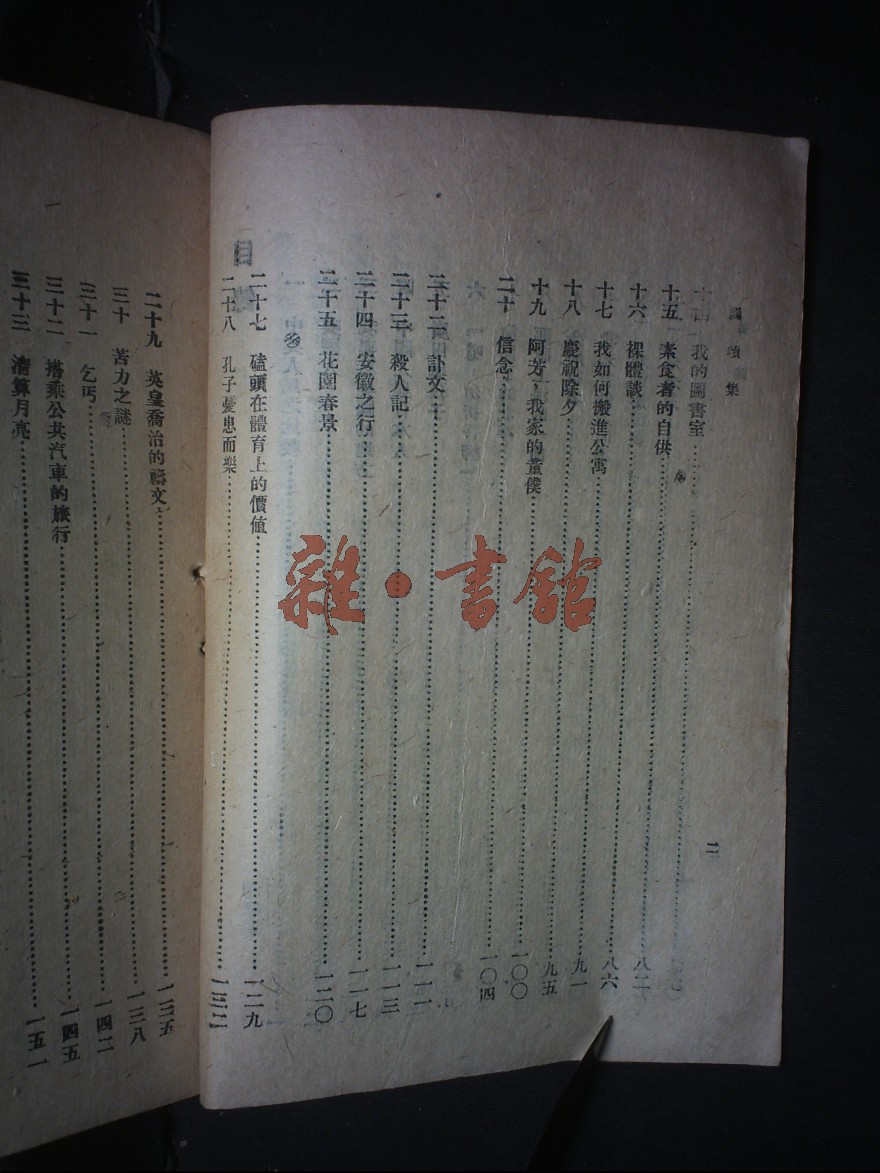 諷頌集
二
十四 我的圖書室
十五 素食者的自供……八二
十六 裸體談……八六
十七 我如何搬進公寓……九一
十八 慶祝除夕……九五
十九 阿芳,我家的童僕……一〇〇
二十 信念……一〇四
二十二 訃文……一一一
二十三 殺人記……一一三
二十四 安徽之行……一一七
二十五 花園春景……一二〇
二十七 磕頭在體育上的價值……一二九
二十八 孔子憂患而樂……一三二
目
二十九 英皇喬治的禱文……一三五
三十 苦力之謎……一三八
三十一 乞丐……一四二
三十二 搭乘公共汽車的旅行……一四五
三十三 清算月亮……一五一
雜·書館